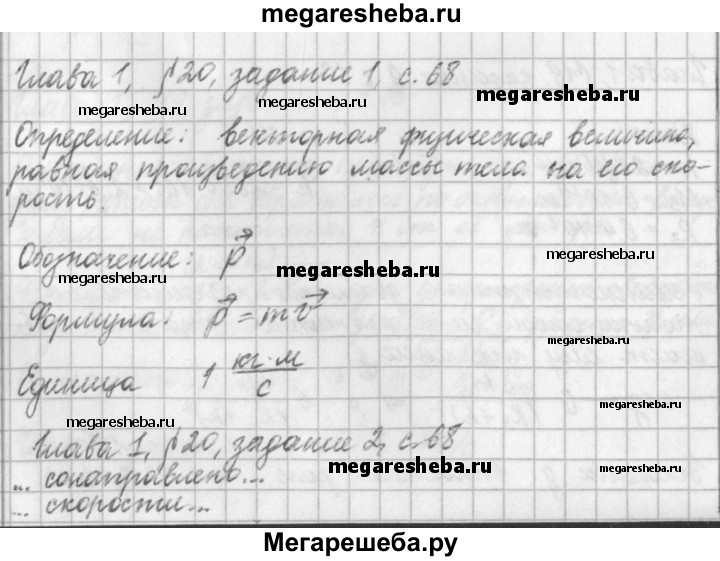 megaresheba.ru
Глава 1, §20, задание 1, с. 68
megaresheba.ru
megaresheba.ru
Определение: векторная физическая величина,
megaresheba.ru
равная произведению массы тела на его ско-
рость.
Обозначение: p⃗
megaresheba.ru
megaresheba.ru
megaresheba.ru
Формула: p⃗ = mv⃗
Единица 1 кг·м/с
megaresheba.ru
megaresheba.ru
Глава 1, §20, задание 2, с. 68
... сонаправлено...
megaresheba.ru
... скорости...
Мегарешеба.ру